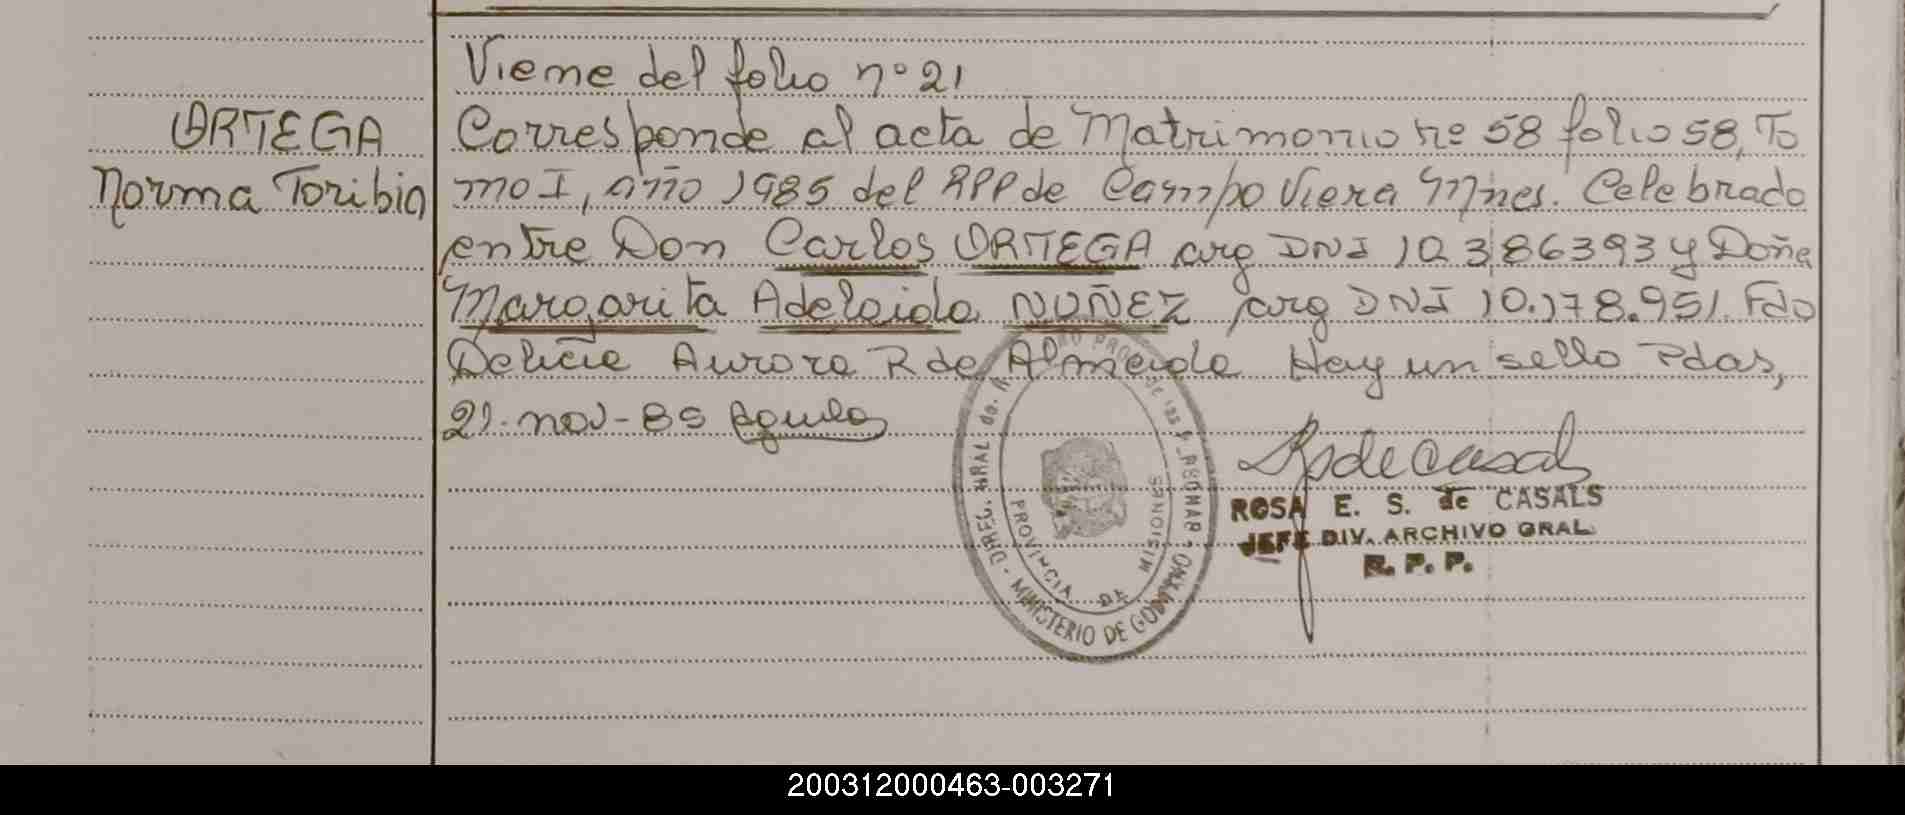 Viene del folio nº 21
ORTEGA
Norma Toribia
Corresponde al acta de Matrimonio nº 58 folio 58, To
mo I, año 1985 del RPP de Campo Viera Mnes. Celebrado
entre Don Carlos ORTEGA arg DNI 10386393 y Doña
Margarita Adelaida NUÑEZ arg DNI 10.178.951. Fdo
Delicia Aurora R de Almeida Hay un sello Pdas,
21-nov-85
ROSA E. S. de CASALS
JEFE DIV. ARCHIVO GRAL.
R. P. P.
MINISTERIO DE GOBIERNO
PROVINCIA DE MISIONES
200312000463-003271